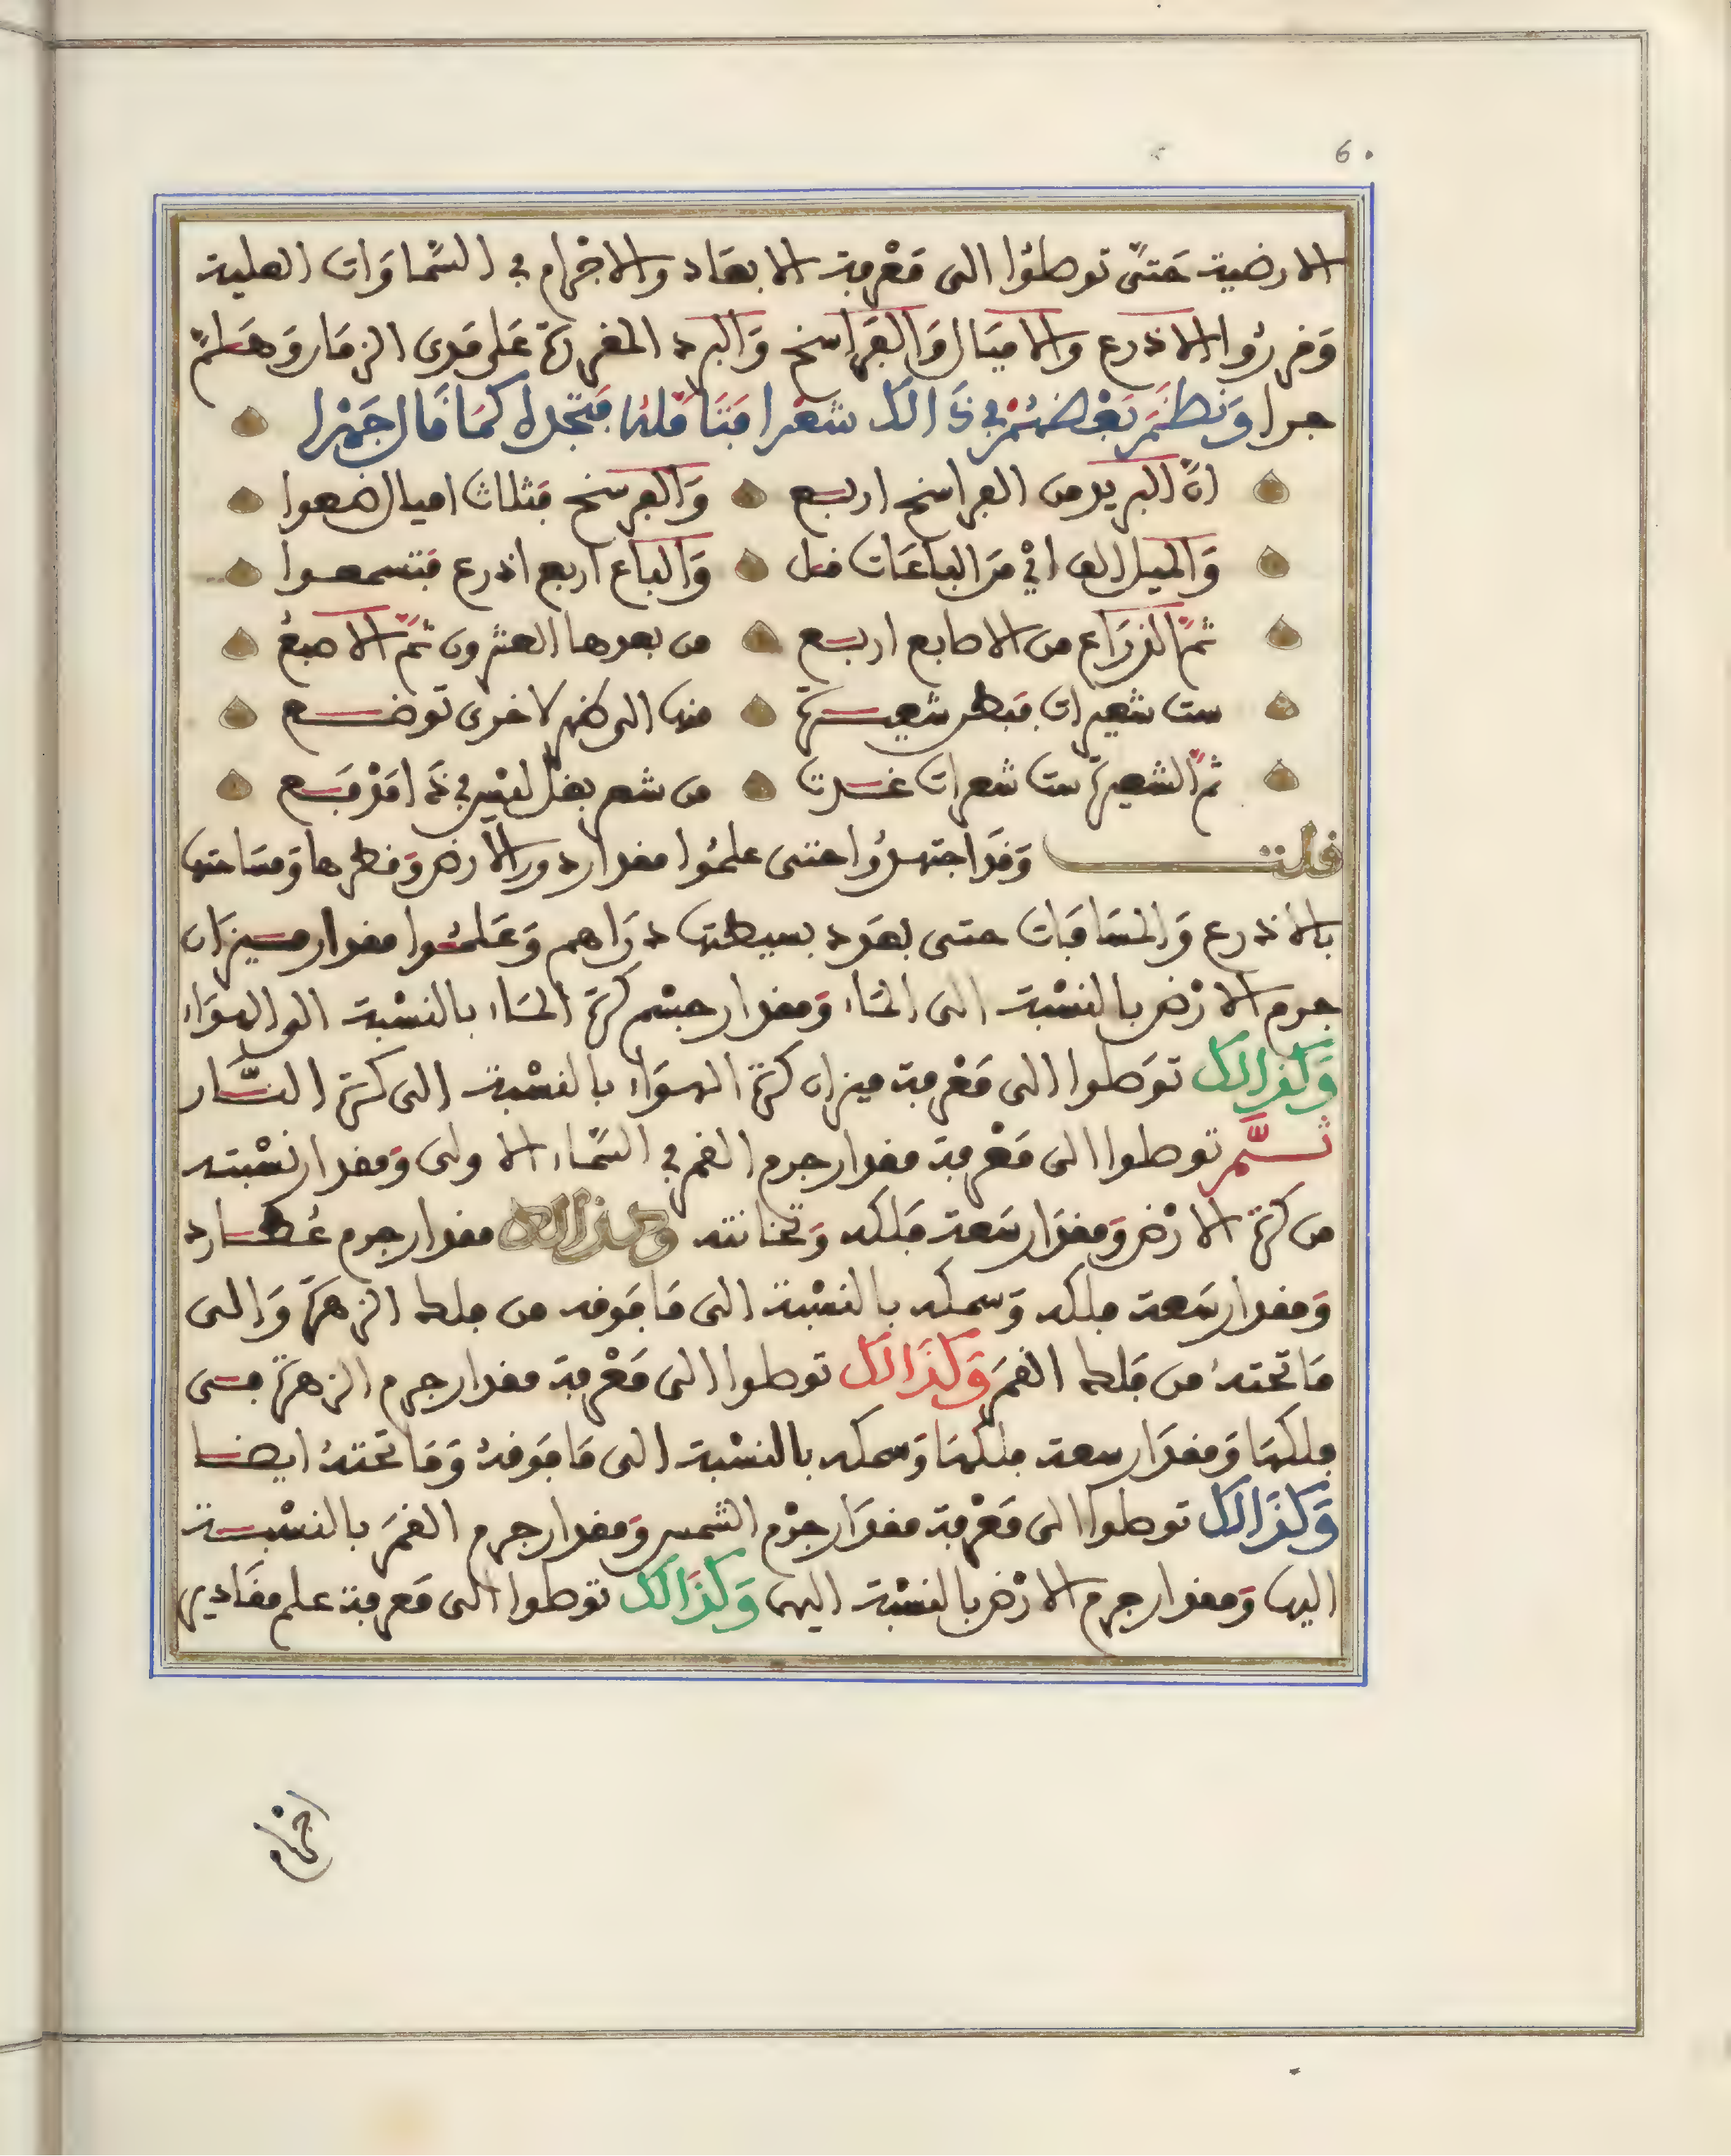 6.
الارضية حَتىّ توصلُوا الى مَعْرفة الابعَاد والاجْرام في السّماوَات العلية
وَفررُوا الاذرع والاميَال وَالفَراسخ وَالبرد المقررَة عَلى مَدى الزمَان وَهَلمّ
جرا وَنظمَ بَعْضهُمْ في ذَالك شعْرا فَتَامّلهُ فتجده كمَا قَال جَهْرا
انّ البريد من الفراسخ اربع وَالفرسخ فثلاث اميال ضعوا
وَالميل الف ايْ مَن الباعَات قل وَالباع اربع اذرع فتسمعوا
ثمّ الذرَاع من الاصابع اربع من بعدها العشرون ثمّ الاصبعُ
ست شعيرات فبطن شعيرة منها الى ظهر لاخرى توضع
ثمّ الشعيرة ست شعرات غدت من شعر بغل ليْس في ذَا مَدْفَع
قلت وَقد اجتهدُوا حتى علمُوا مقدار دور الارض وَقطرها وَمسَاحتها
بالاذرع وَالمسَافَات حتى بعَدد بسيطتها درَاهم وَعَلمُوا مقدار ميزان
جرم الارْض بالنسْبة الى المَاء وَمقدار جسْم كرة المَاء بالنسْبة الى الهوَاء
وَكذالك توَصلوا الى مَعْرفة ميزان كرة الهوَاء بالنسْبة الى كرة النّار
ثمّ توصلوا الى مَعْرفة مقدار جرم القمر في السّمَاء الاولى وَمقدار نسْبته
من كرة الارْض وَمقدَار سَعة فَلكه وَثخانته وكذالك مقدار جرم عُطارد
وَمقدار سَعة فلكه وَسمكه بالنسْبة الى مَا فَوقه من فلك الزهرَة وَالى
مَا تحتهُ من فَلك القمَر وَكذَالك توصلوا الى مَعْرفة مقدار جرم الزهرَة في
فلكهَا وَمقدَار سعة فلكهَا وَسمكه بالنسْبة الى مَا فَوقهُ وَمَا تحتهُ ايضا
وَكذَالك توصلوا الى مَعْرفة مقدَار جرْم الشمس وَمقدار جرم القمَر بالنسْبة
اليها وَمقدار جرم الارْض بالنسْبة اليها وَكذَالك توصلوا الى مَعرفة علم مقَادير
اجرام